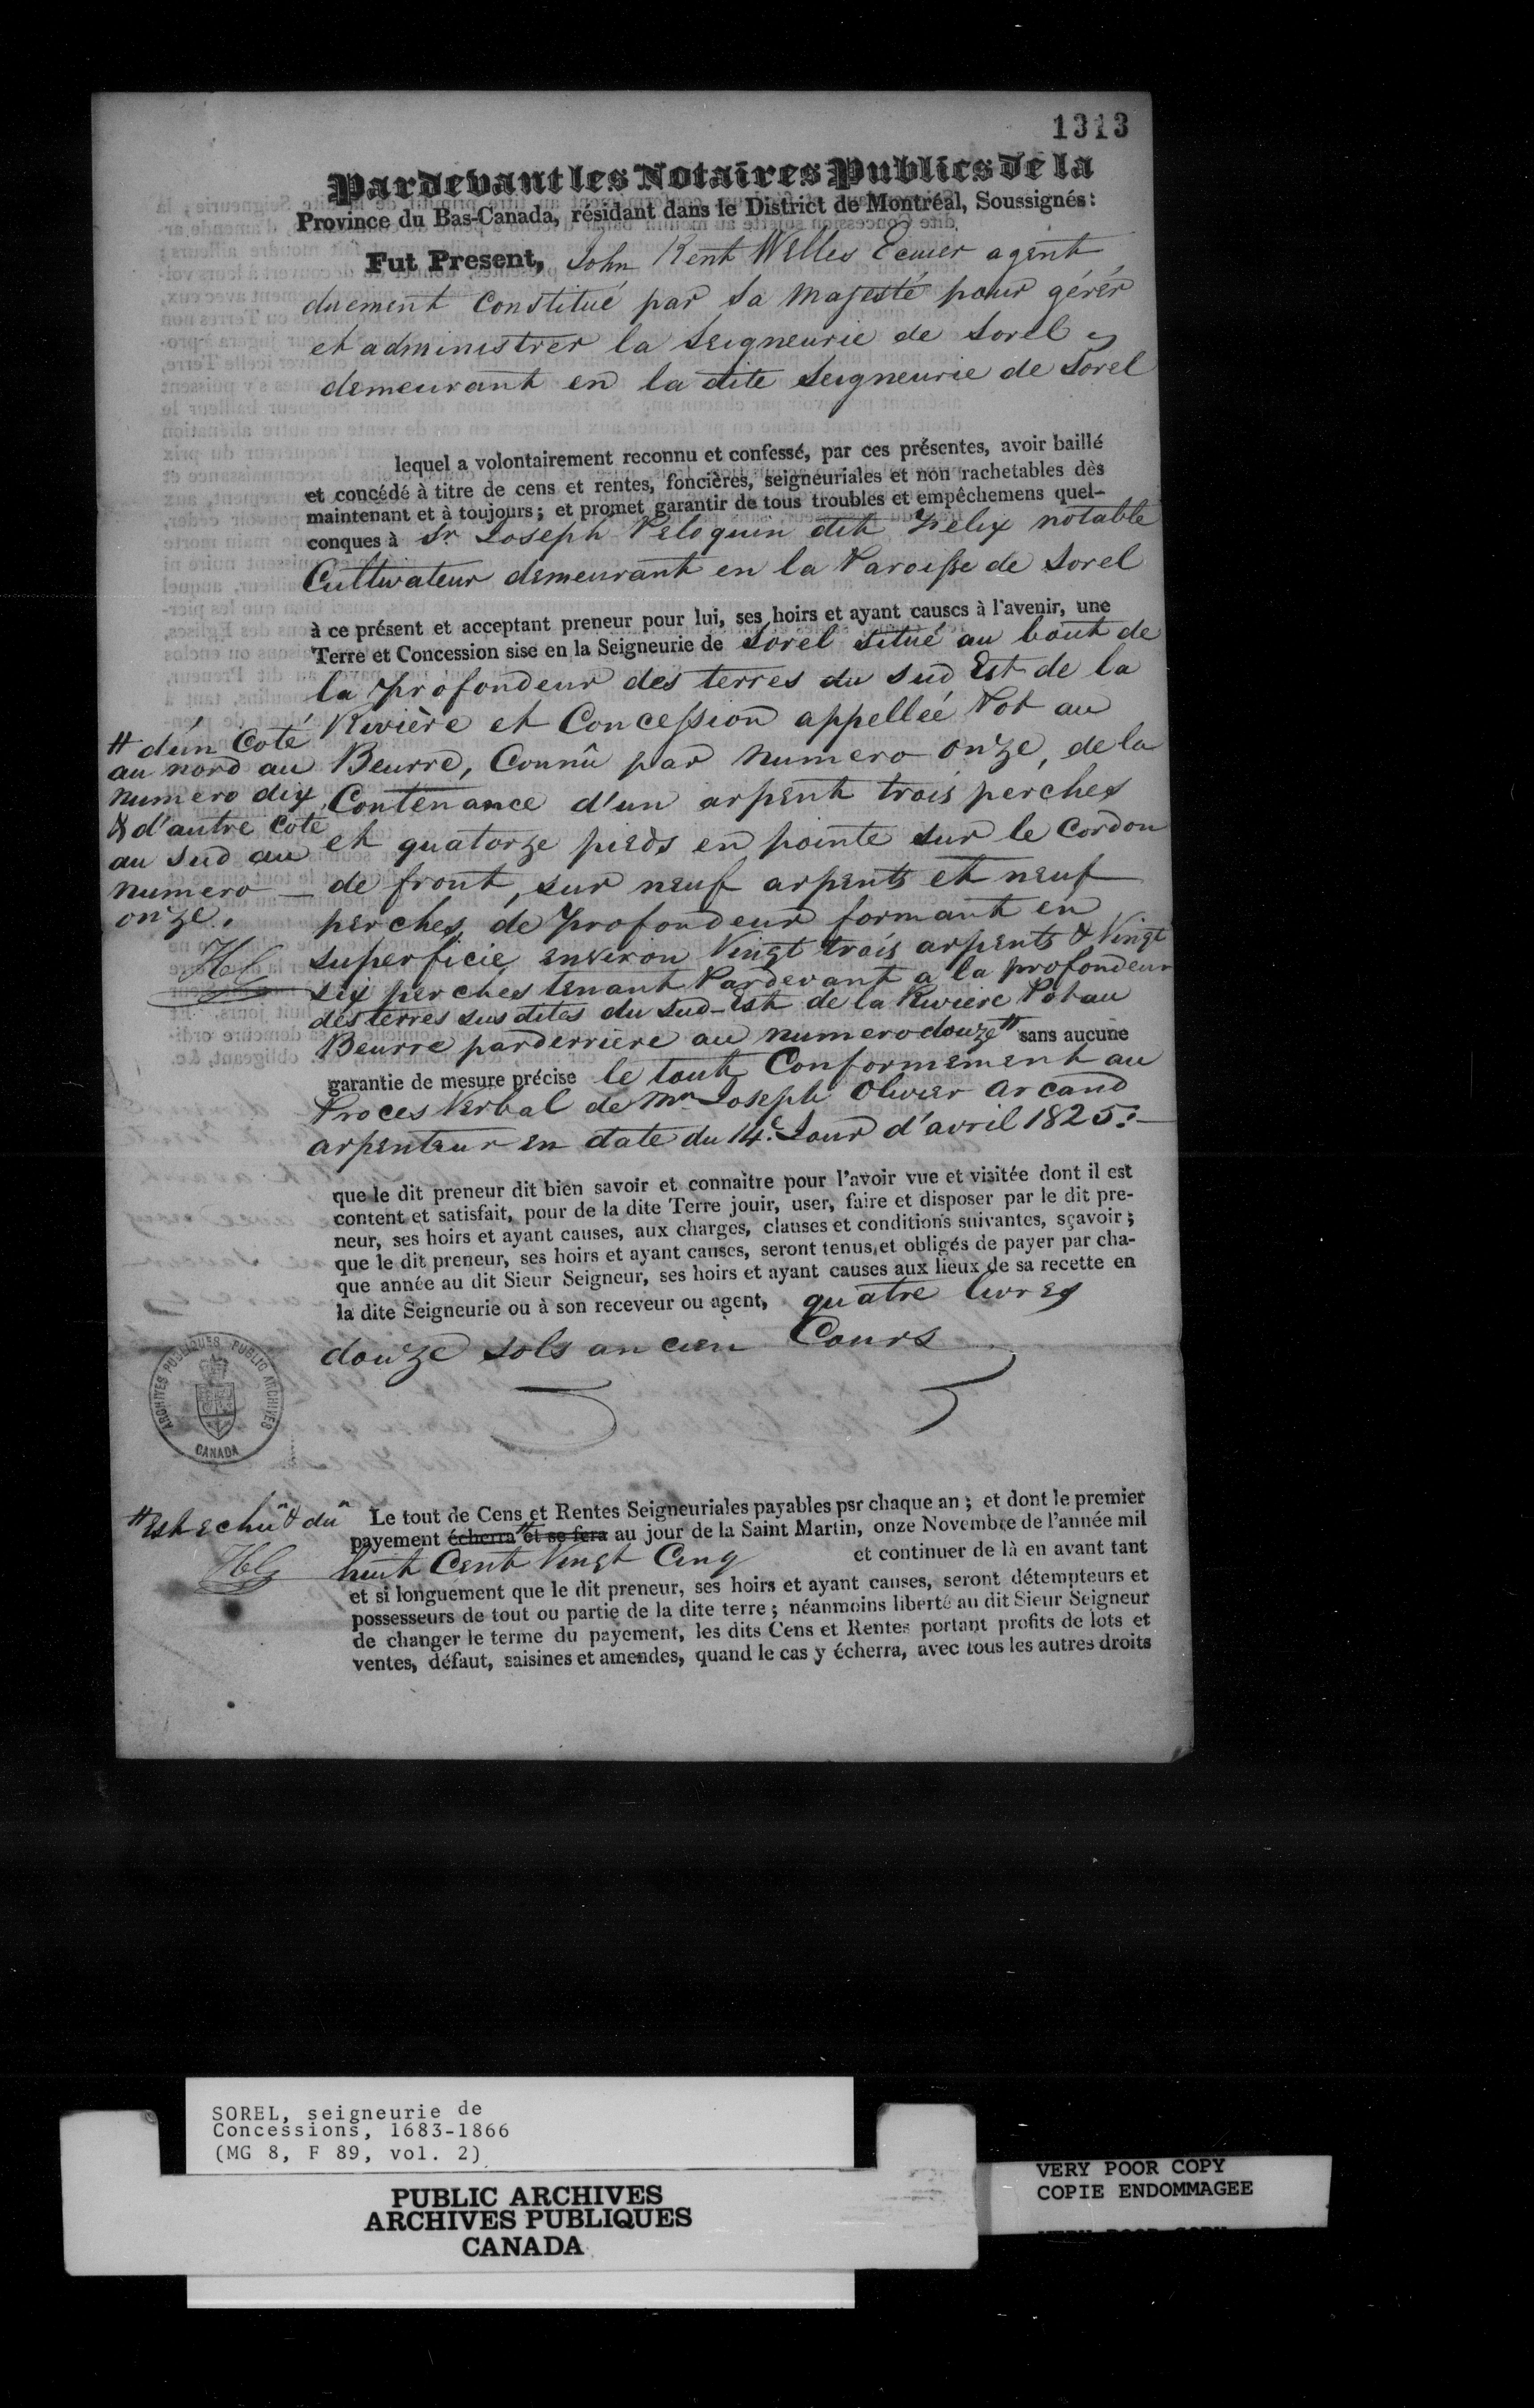 1313
Pardevant les Notaires Publics de la
Province du Bas-Canada, résidant dans le District de Montréal, Soussignés:
Fut Present, John Kent Welles Ecuier agent
duement Constitué par Sa Majesté pour gérér
et administrer la Seigneurie de Sorel
demeurant en la dite Seigneurie de Sorel
lequel a volontairement reconnu et confessé, par ces présentes, avoir baillé
et concédé à titre de cens et rentes, foncières, seigneuriales et non rachetables dès
maintenant et à toujours; et promet garantir de tous troubles et empêchemens quel-
conques à Sr. Joseph Peloquin dit Felix notable
Cultivateur demeurant en la Paroisse de Sorel
à ce présent et acceptant preneur pour lui, ses hoirs et ayant causes à l'avenir, une
Terre et Concession sise en la Seigneurie de Sorel Situé au bout de
la profondeur des terres du sud Est de la
Rivière et Concession appelleé Pot au
Beurre, Connû par Numero onze, de la
Contenance d'un arpent trois perches
et quatorze pieds en pointe sur le Cordon
de front, sur neuf arpents et neuf
perches de profondeur formant en
superficie environ Vingt trois arpents & Vingt
six perches tenant Pardevant a la profondeur
des terres sus dites du Sud-Est de la Riviere Pot au
Beurre parderriere au numero douze # sans aucune
garantie de mesure précise le tout Conformement au
Proces Verbal de Mr. Joseph Olivier Arcand
arpenteur en date du 14e. Jour d'avril 1825:-
# d'un Coté
au nord au
numero dix
& d'autre Coté
au Sud au
numero
onze.
que le dit preneur dit bien savoir et connaitre pour l'avoir vue et visitée dont il est
content et satisfait, pour de la dite Terre jouir, user, faire et disposer par le dit pre-
neur, ses hoirs et ayant causes, aux charges, clauses et conditions suivantes, sçavoir;
que le dit preneur, ses hoirs et ayant causes, seront tenus et obligés de payer par cha-
que année au dit Sieur Seigneur, ses hoirs et ayant causes aux lieux de sa recette en
la dite Seigneurie ou à son receveur ou agent, quatre livres
douze sols ancien Cours
ARCHIVES PUBLIQUES PUBLIC ARCHIVES
CANADA
# Est echû & dû
Le tout de Cens et Rentes Seigneuriales payables psr chaque an; et dont le premier
payement écherra # et se fera au jour de la Saint Martin, onze Novembre de l'année mil
huit Cent Vingt Cinq et continuer de là en avant tant
et si longuement que le dit preneur, ses hoirs et ayant causes, seront détempteurs et
possesseurs de tout ou partie de la dite terre; néanmoins liberté au dit Sieur Seigneur
de changer le terme du payement, les dits Cens et Rentes portant profits de lots et
ventes, défaut, saisines et amendes, quand le cas y écherra, avec tous les autres droits
SOREL, seigneurie de
Concessions, 1683-1866
(MG 8, F 89, vol. 2)
PUBLIC ARCHIVES
ARCHIVES PUBLIQUES
CANADA
VERY POOR COPY
COPIE ENDOMMAGEE